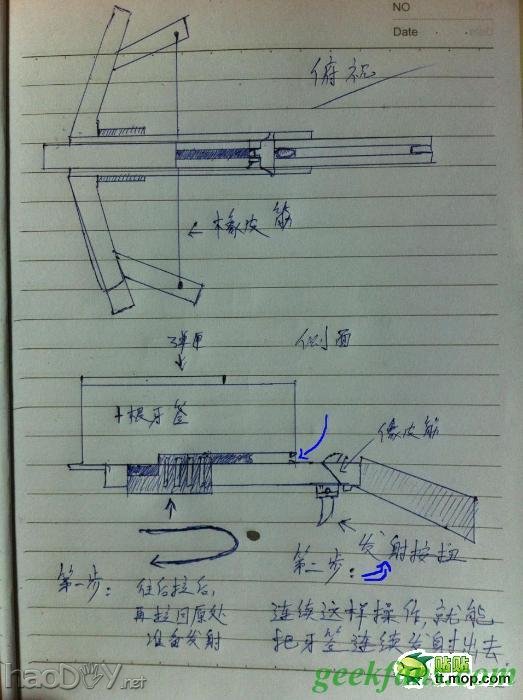 NO
Date
俯视
← 橡皮筋
弹匣
侧面
十根牙签
橡皮筋
发射按扭
第一步：
往后拉后，
再拉回原处
准备发射
第二步：
连续这样操作，就能
把牙签连续发射出去
haoDIY.net
geekfans.com
贴贴
tt.mop.com